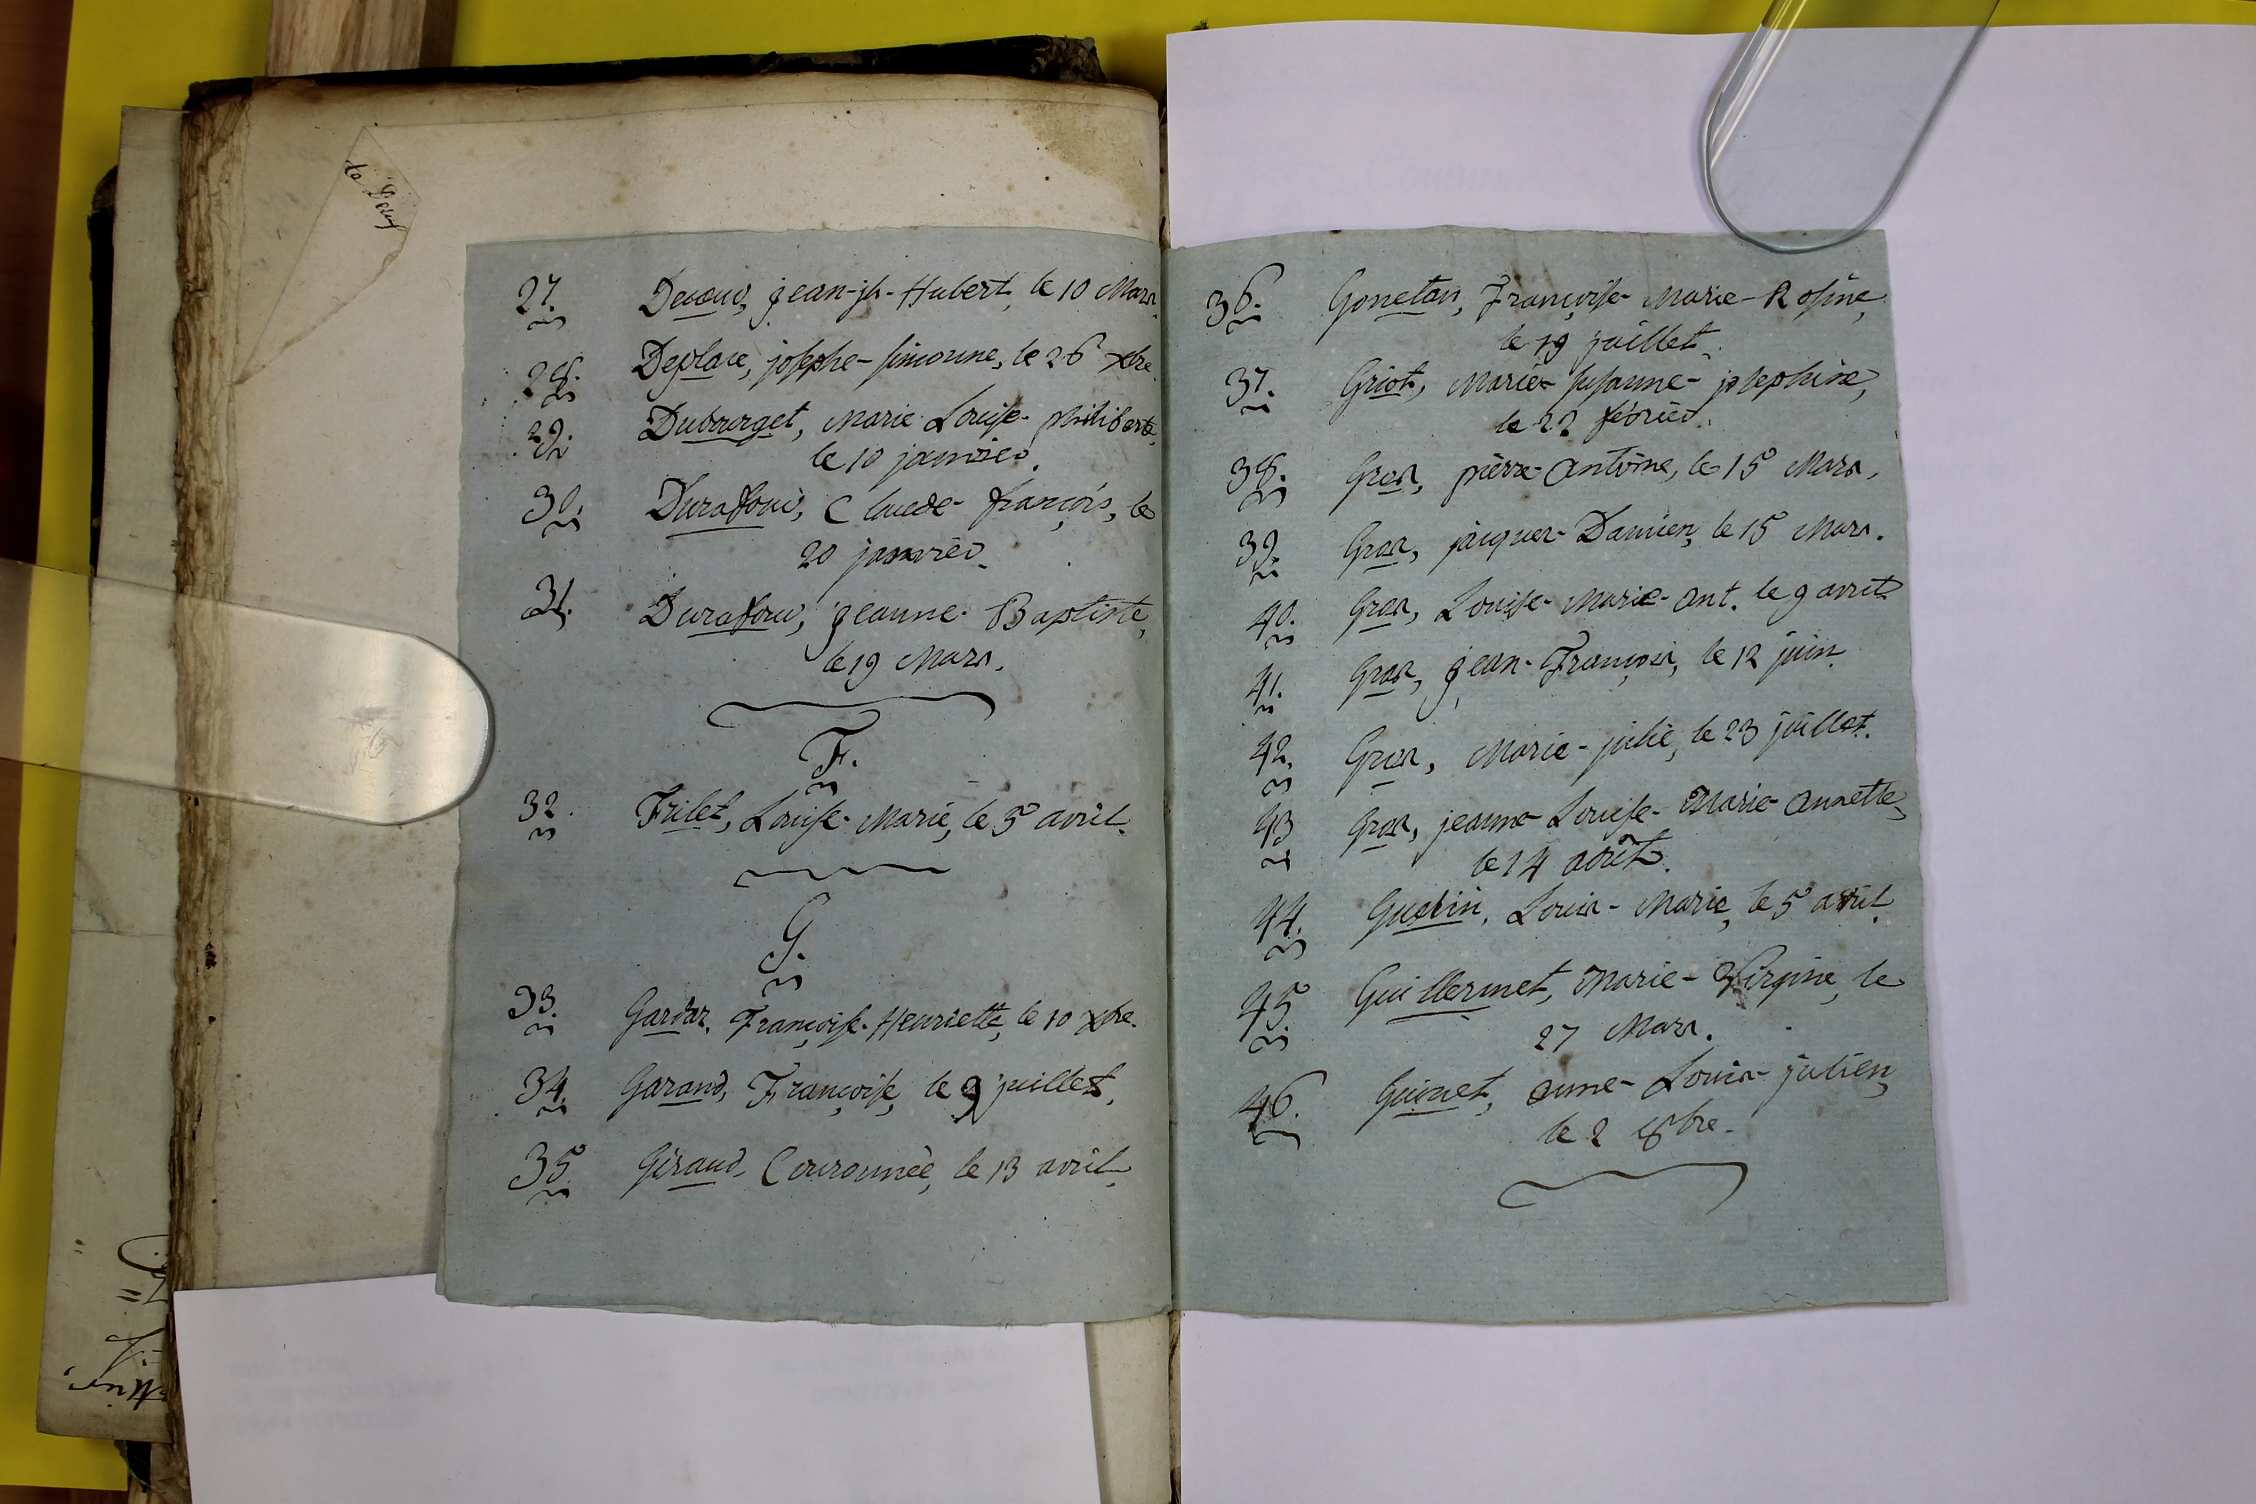 27. Decoeur, jean-jh-Hubert, le 10 Mars.
28. Deplace, josephe-simonne, le 26 xbre.
29. Dubourget, Marie Louise-philiberte,
le 10 janvier.
30. Durafour, Claude-françois, le
20 janvier.
31. Durafour, jeanne-Baptiste,
le 19 Mars.
F.
32. Frilet, Louise-Marie, le 5 avril.
G.
33. Françoise-Henriette, le 10 xbre.
34. Garand, Françoise, le 9 juillet.
35. Giraud, Couronnée, le 13 avril.
36. Gonetan, Françoise-Marie-Rosine,
le 19 juillet.
37. Griot, Marie-susanne-josephine,
le 22 février.
38. Gros, pierre-antoine, le 15 Mars.
39. Gros, jacques-Damien, le 15 Mars.
40. Gros, Louise-Marie-ant. le 9 avril
41. Gros, jean-François, le 12 juin.
42. Gros, Marie-julie, le 23 juillet.
43 Gros, jeanne Louise-Marie-annette,
le 14 août.
44. Louis-Marie, le 5 avril.
45. Guillermet, Marie-Virginie, le
27 Mars.
46. Guinet, aimé-Louis-julien,
le 2 8bre.